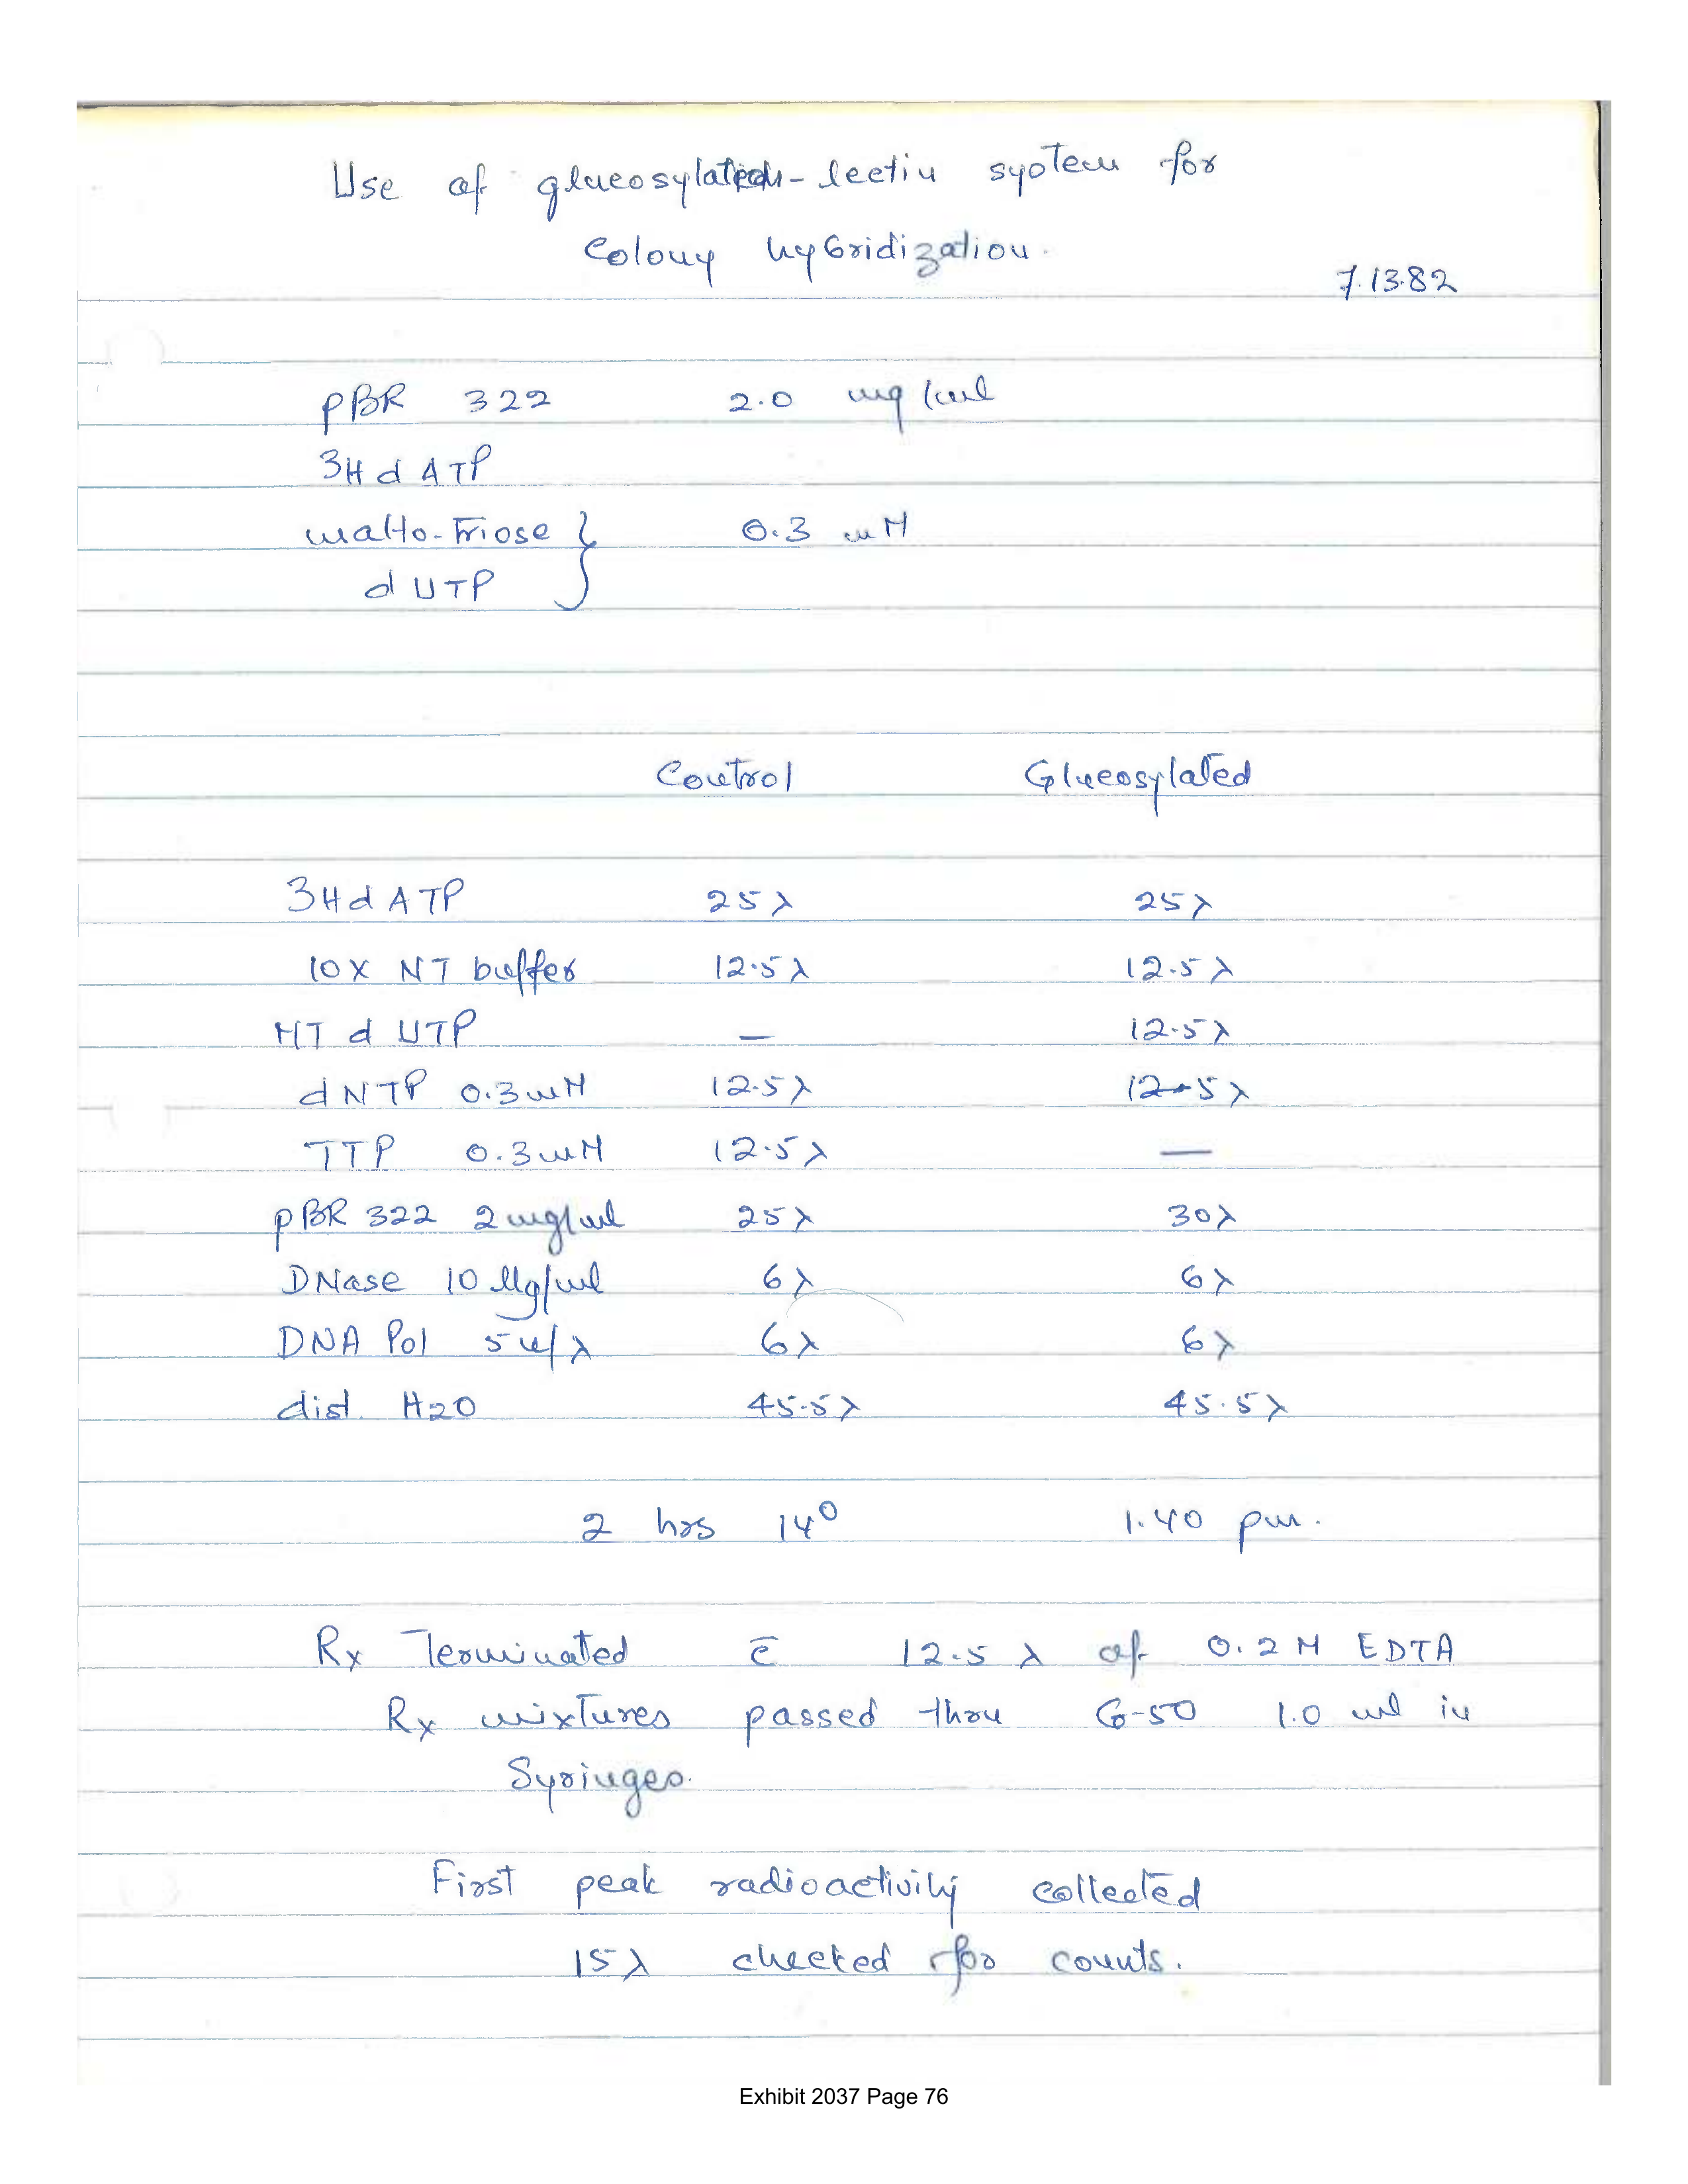 Use of glucosylated-lectin system for
Colony hybridization.
7.13.82
pBR 322 2.0 mg/ml
3H d ATP
malto-triose } 0.3 mM
d UTP
Control Glucosylated
3H d ATP 25λ 25λ
10x NT buffer 12.5λ 12.5λ
MT d UTP — 12.5λ
dNTP 0.3mM 12.5λ 12.5λ
TTP 0.3mM 12.5λ —
pBR 322 2mg/ml 25λ 30λ
DNase 10 µg/ml 6λ 6λ
DNA Pol 5u/λ 6λ 6λ
dist. H2O 45.5λ 45.5λ
2 hrs 14° 1.40 pm.
Rx Terminated c̄ 12.5 λ of 0.2M EDTA
Rx mixtures passed thru G-50 1.0 ml in
Syringes.
First peak radioactivity collected
15λ checked for counts.
Exhibit 2037 Page 76